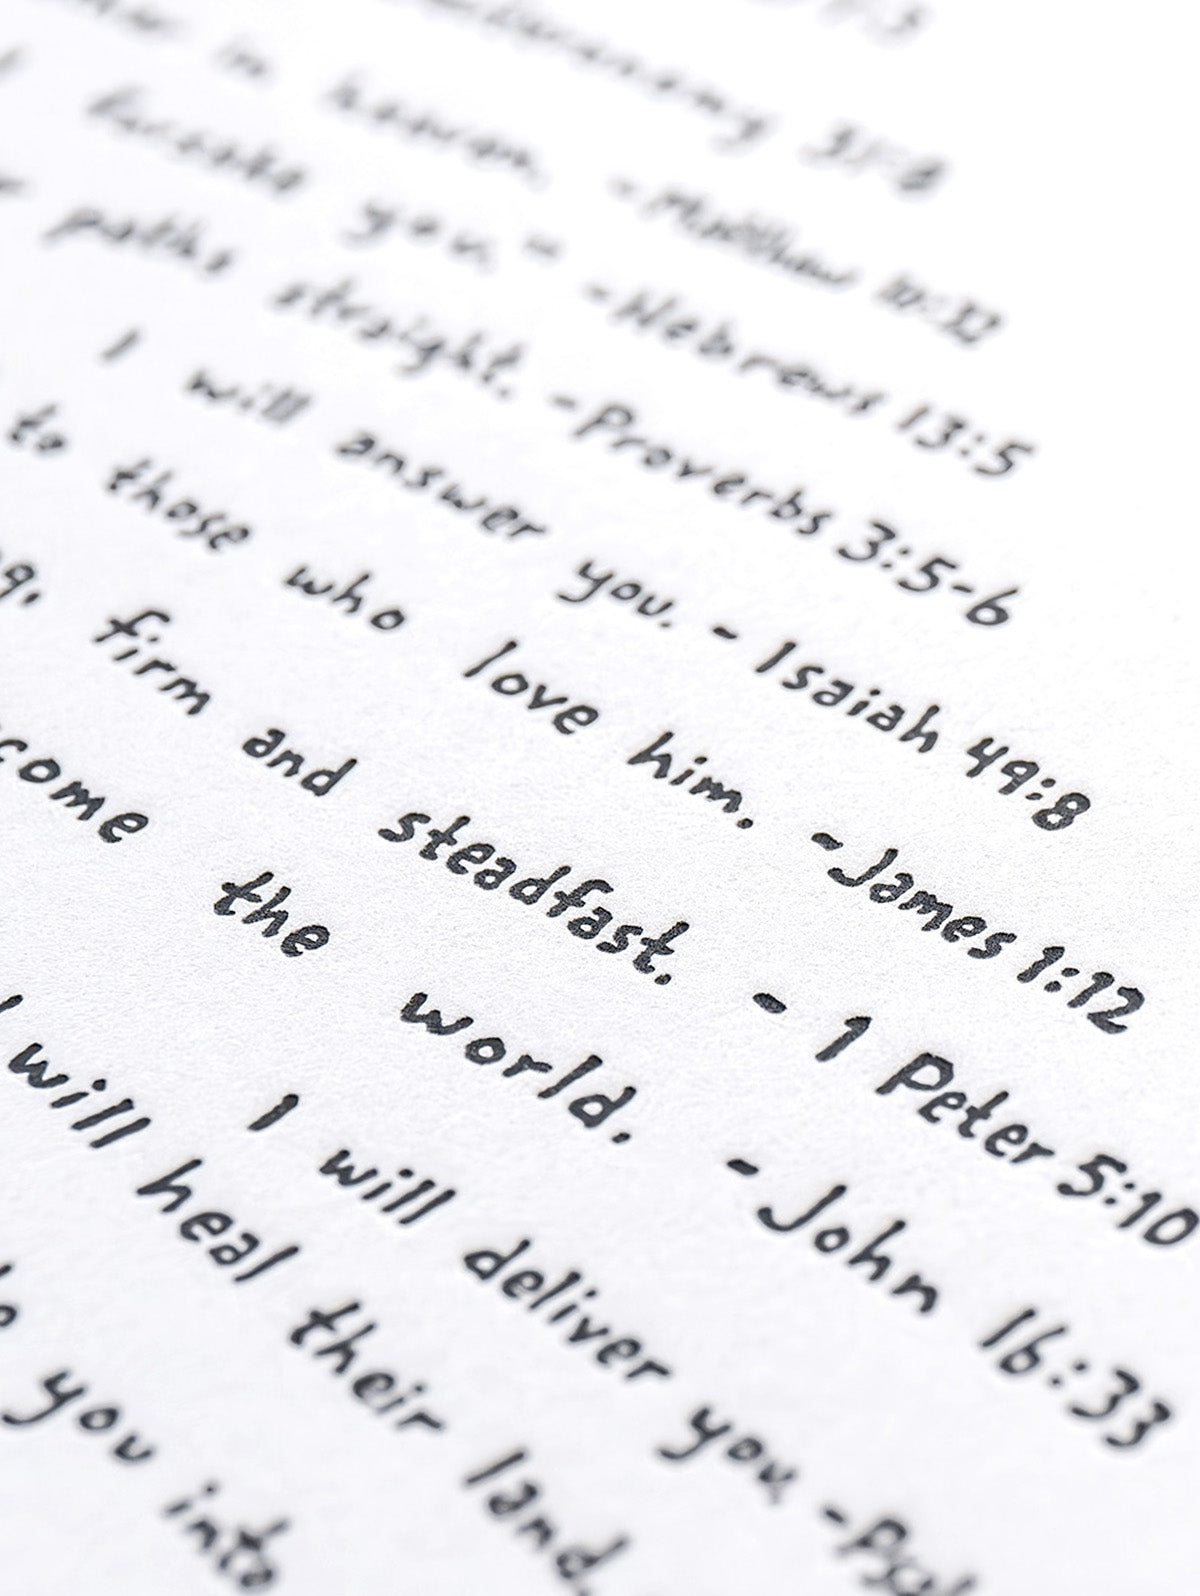 31:8
in heaven. -Matthew 10:32
forsake you." -Hebrews 13:5
paths straight. -Proverbs 3:5-6
I will answer you. - Isaiah 49:8
to those who love him. -James 1:12
g, firm and steadfast. - 1 Peter 5:10
come the world. - John 16:33
I will deliver you. -Psal
will heal their land.
you into